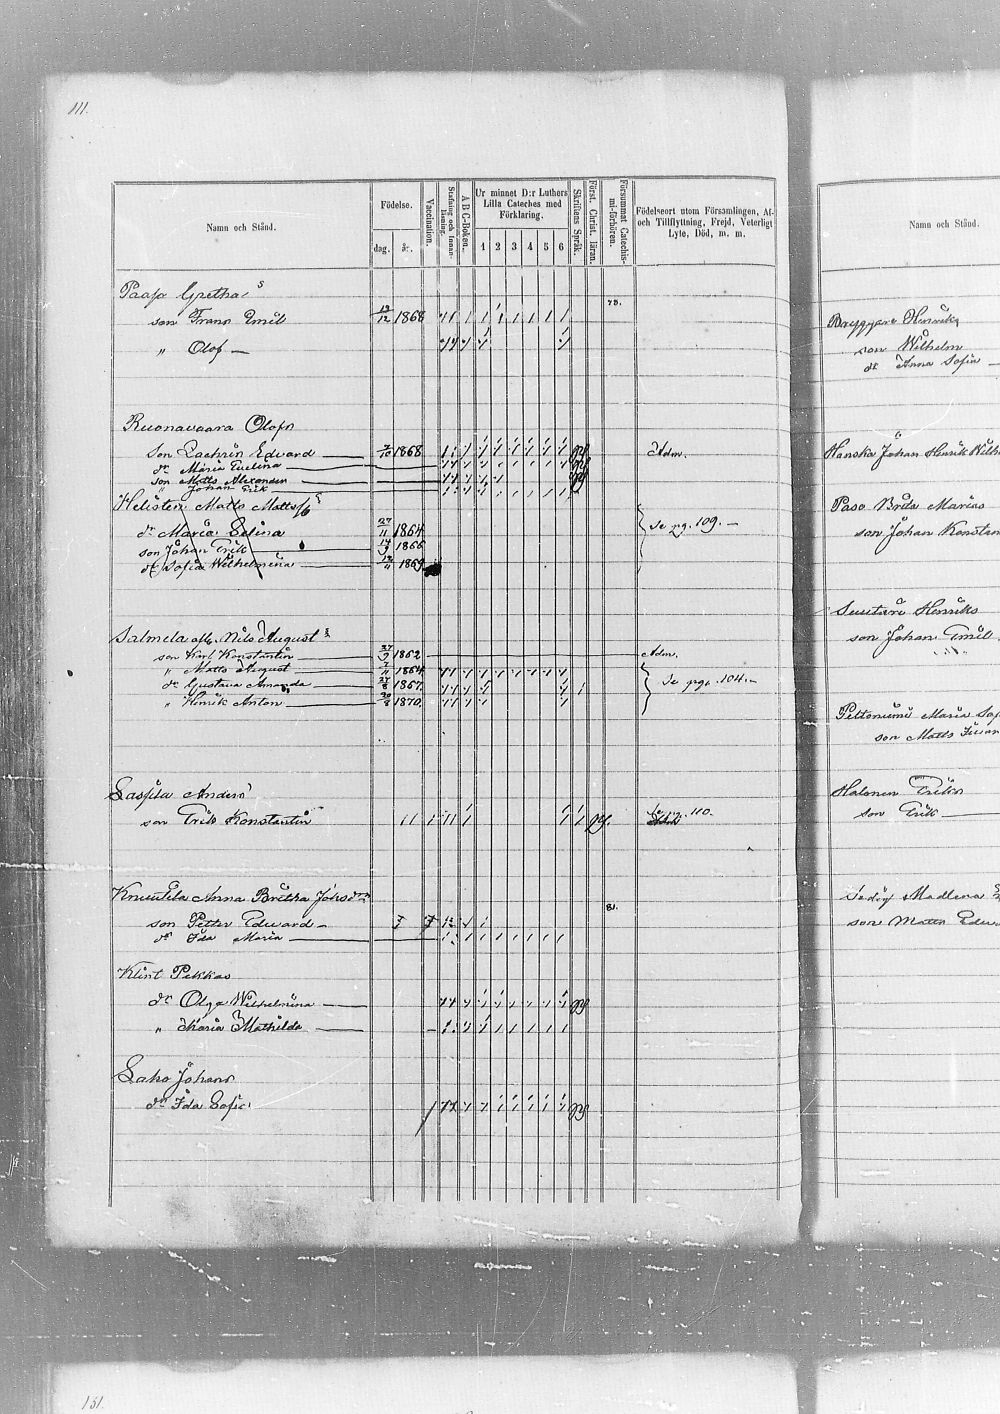 111.
Namn och Stånd.
Födelse.
dag.
år.
Vaccination.
Stafning och Innanläsning.
A B C-Boken.
Ur minnet D:r Luthers Lilla Cateches med Förklaring.
1 2 3 4 5 6
Skriftens Språk.
Först. Christ. läran.
Försummat Catechismi-förhören.
Födelseort utom Församlingen, Af- och Tillflyttning, Frejd, Veterligt Lyte, Död, m. m.
Paaso Gretha s
son Frans Emil 19/12 1868 78.
" Olof —
Ruonavaara Olofs
Son Zachrin Edvard 2/10 1868 Adm.
dr Maria Evelina
son Matts Alexander
" Johan Erik
Helisten Matts Matts
dr Maria Selina 27/11 1864 Se pg. 109. —
son Johan Erik 1866
dr Sofia Wilhelmina 1869
Salmela Nils August s
son Karl Konstantin 1862 Adm.
" Matts August 1864
dr Gustava Amanda 27/8 1867. Se pg. 104. —
" Henrik Anton 20/8 1870.
Lassila Anders
son Erik Konstantin 11 110.
Knuutila Anna Britha Johsdr 81.
son Petter Edvard —
dr Ida Maria
Klint Pekkas
dr Olga Wilhelmina
" Maria Mathilda
Laho Johans
dr Ida Sofia
Namn och Stånd.
Bryggare Henriks
son Wilhelm
dr Anna Sofia —
Hanska Johan Henrik Wilh
Paso Brita Marias
son Johan Konstan
Henriks
son Johan Emil
Peltoniemi Maria Sof
son Matts
Halonen Eriks
son Erik
Madlena
son Matts Edv
131.